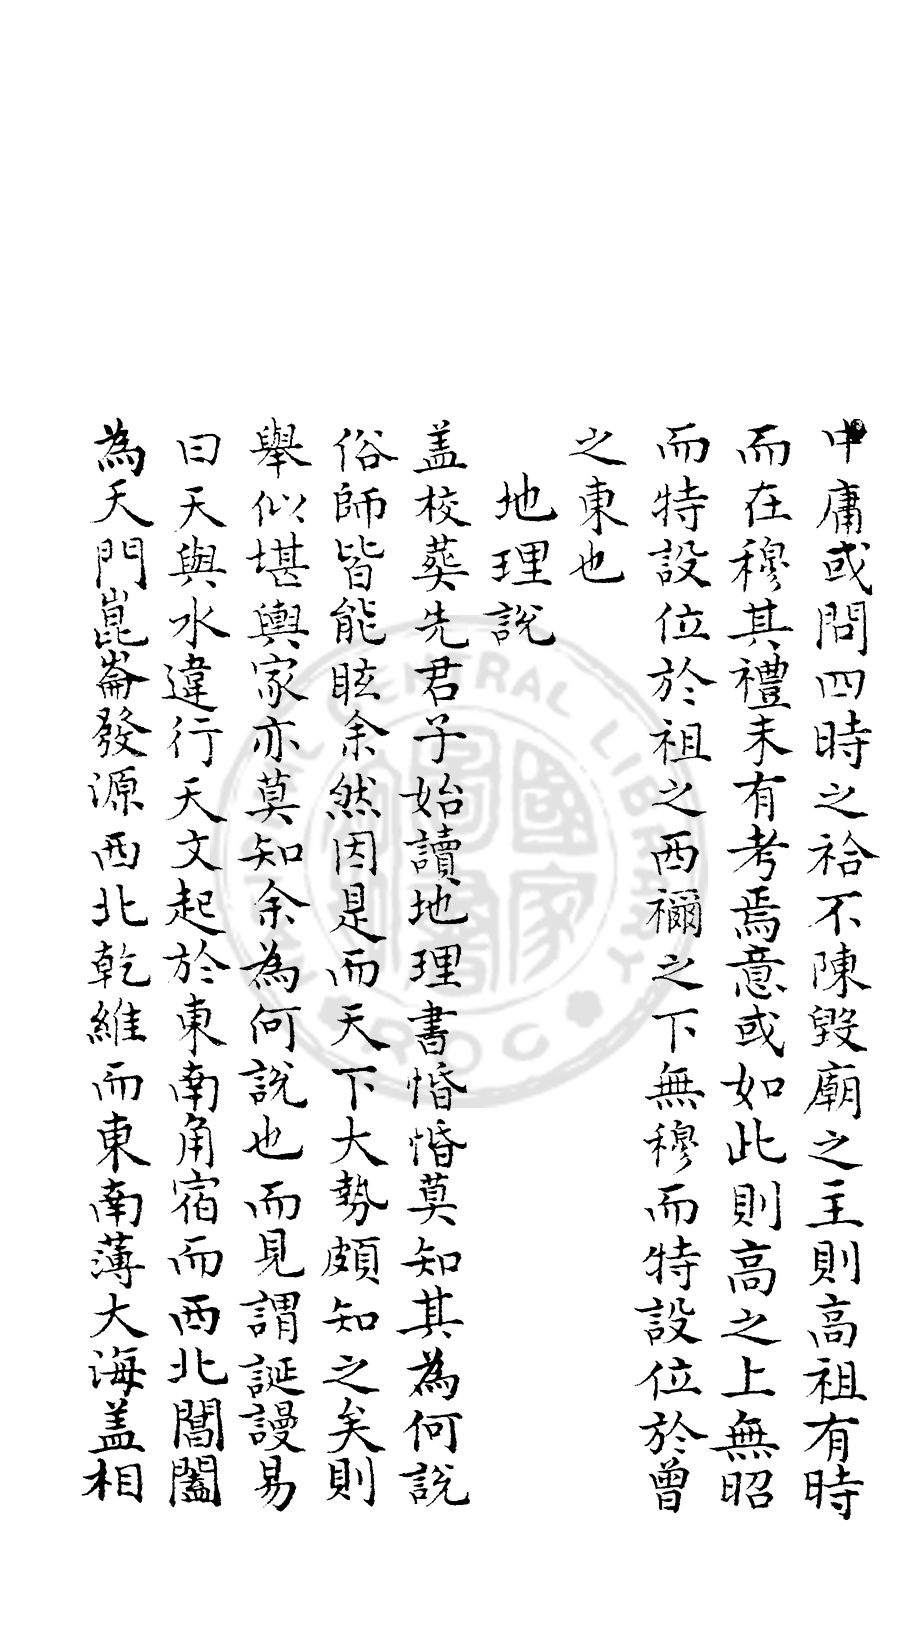 中庸或問四時之祫不陳毀廟之主則高祖有時
而在穆其禮未有考焉意或如此則高之上無昭
而特設位於祖之西禰之下無穆而特設位於曾
之東也
地理說
盖校葬先君子始讀地理書惛惛莫知其為何說
俗師皆能眩余然因是而天下大勢頗知之矣則
舉似堪輿家亦莫知余為何說也而見謂誕謾易
曰天與水違行天文起於東南角宿而西北閶闔
為天門崑崙發源西北乾維而東南薄大海盖相
CENTRAL LIBRARY
ROC